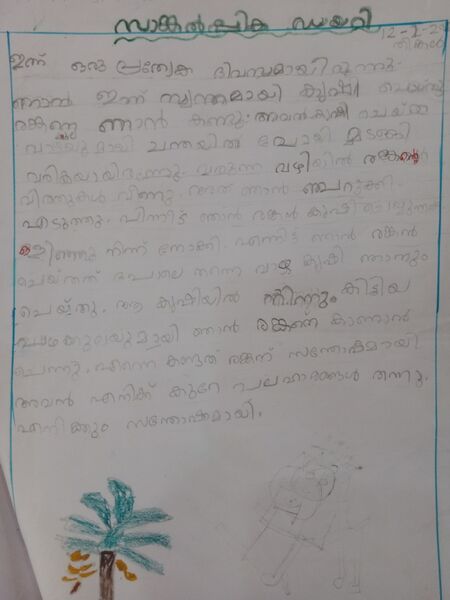 സാങ്കൽപ്പിക ഡയറി
തിങ്കൾ
ഇന്ന് ഒരു പ്രത്യേക ദിവസമായിരുന്നു.
ഞാൻ ഇന്ന് സ്വന്തമായി കൃഷി ചെയ്യുന്ന
രങ്കണ്ണനെ ഞാൻ കണ്ടു. അവൻ കൃഷി ചെയ്ത
വാഴയുമായി ചന്തയിൽ പോയി മടങ്ങി
വരികയായിരുന്നു. വരുന്ന വഴിയിൽ രങ്കന്റെ
വിത്തുകൾ വീണു. അത് ഞാൻ പെറുക്കി
എടുത്തു. പിന്നീട് ഞാൻ രങ്കൻ കൃഷി ചെയ്യുന്നത്
ഒളിഞ്ഞു നിന്ന് നോക്കി. എന്നിട്ട് ഞാൻ രങ്കൻ
ചെയ്തത് പോലെ തന്നെ വാഴ കൃഷി ഞാനും
ചെയ്തു. ആ കൃഷിയിൽ നിന്നും കിട്ടിയ
വാഴക്കുലയുമായി ഞാൻ രങ്കനെ കാണാൻ
ചെന്നു. എന്നെ കണ്ടത് രങ്കന് സന്തോഷമായി
അവൻ എനിക്ക് കുറേ പലഹാരങ്ങൾ തന്നു.
എനിക്കും സന്തോഷമായി.